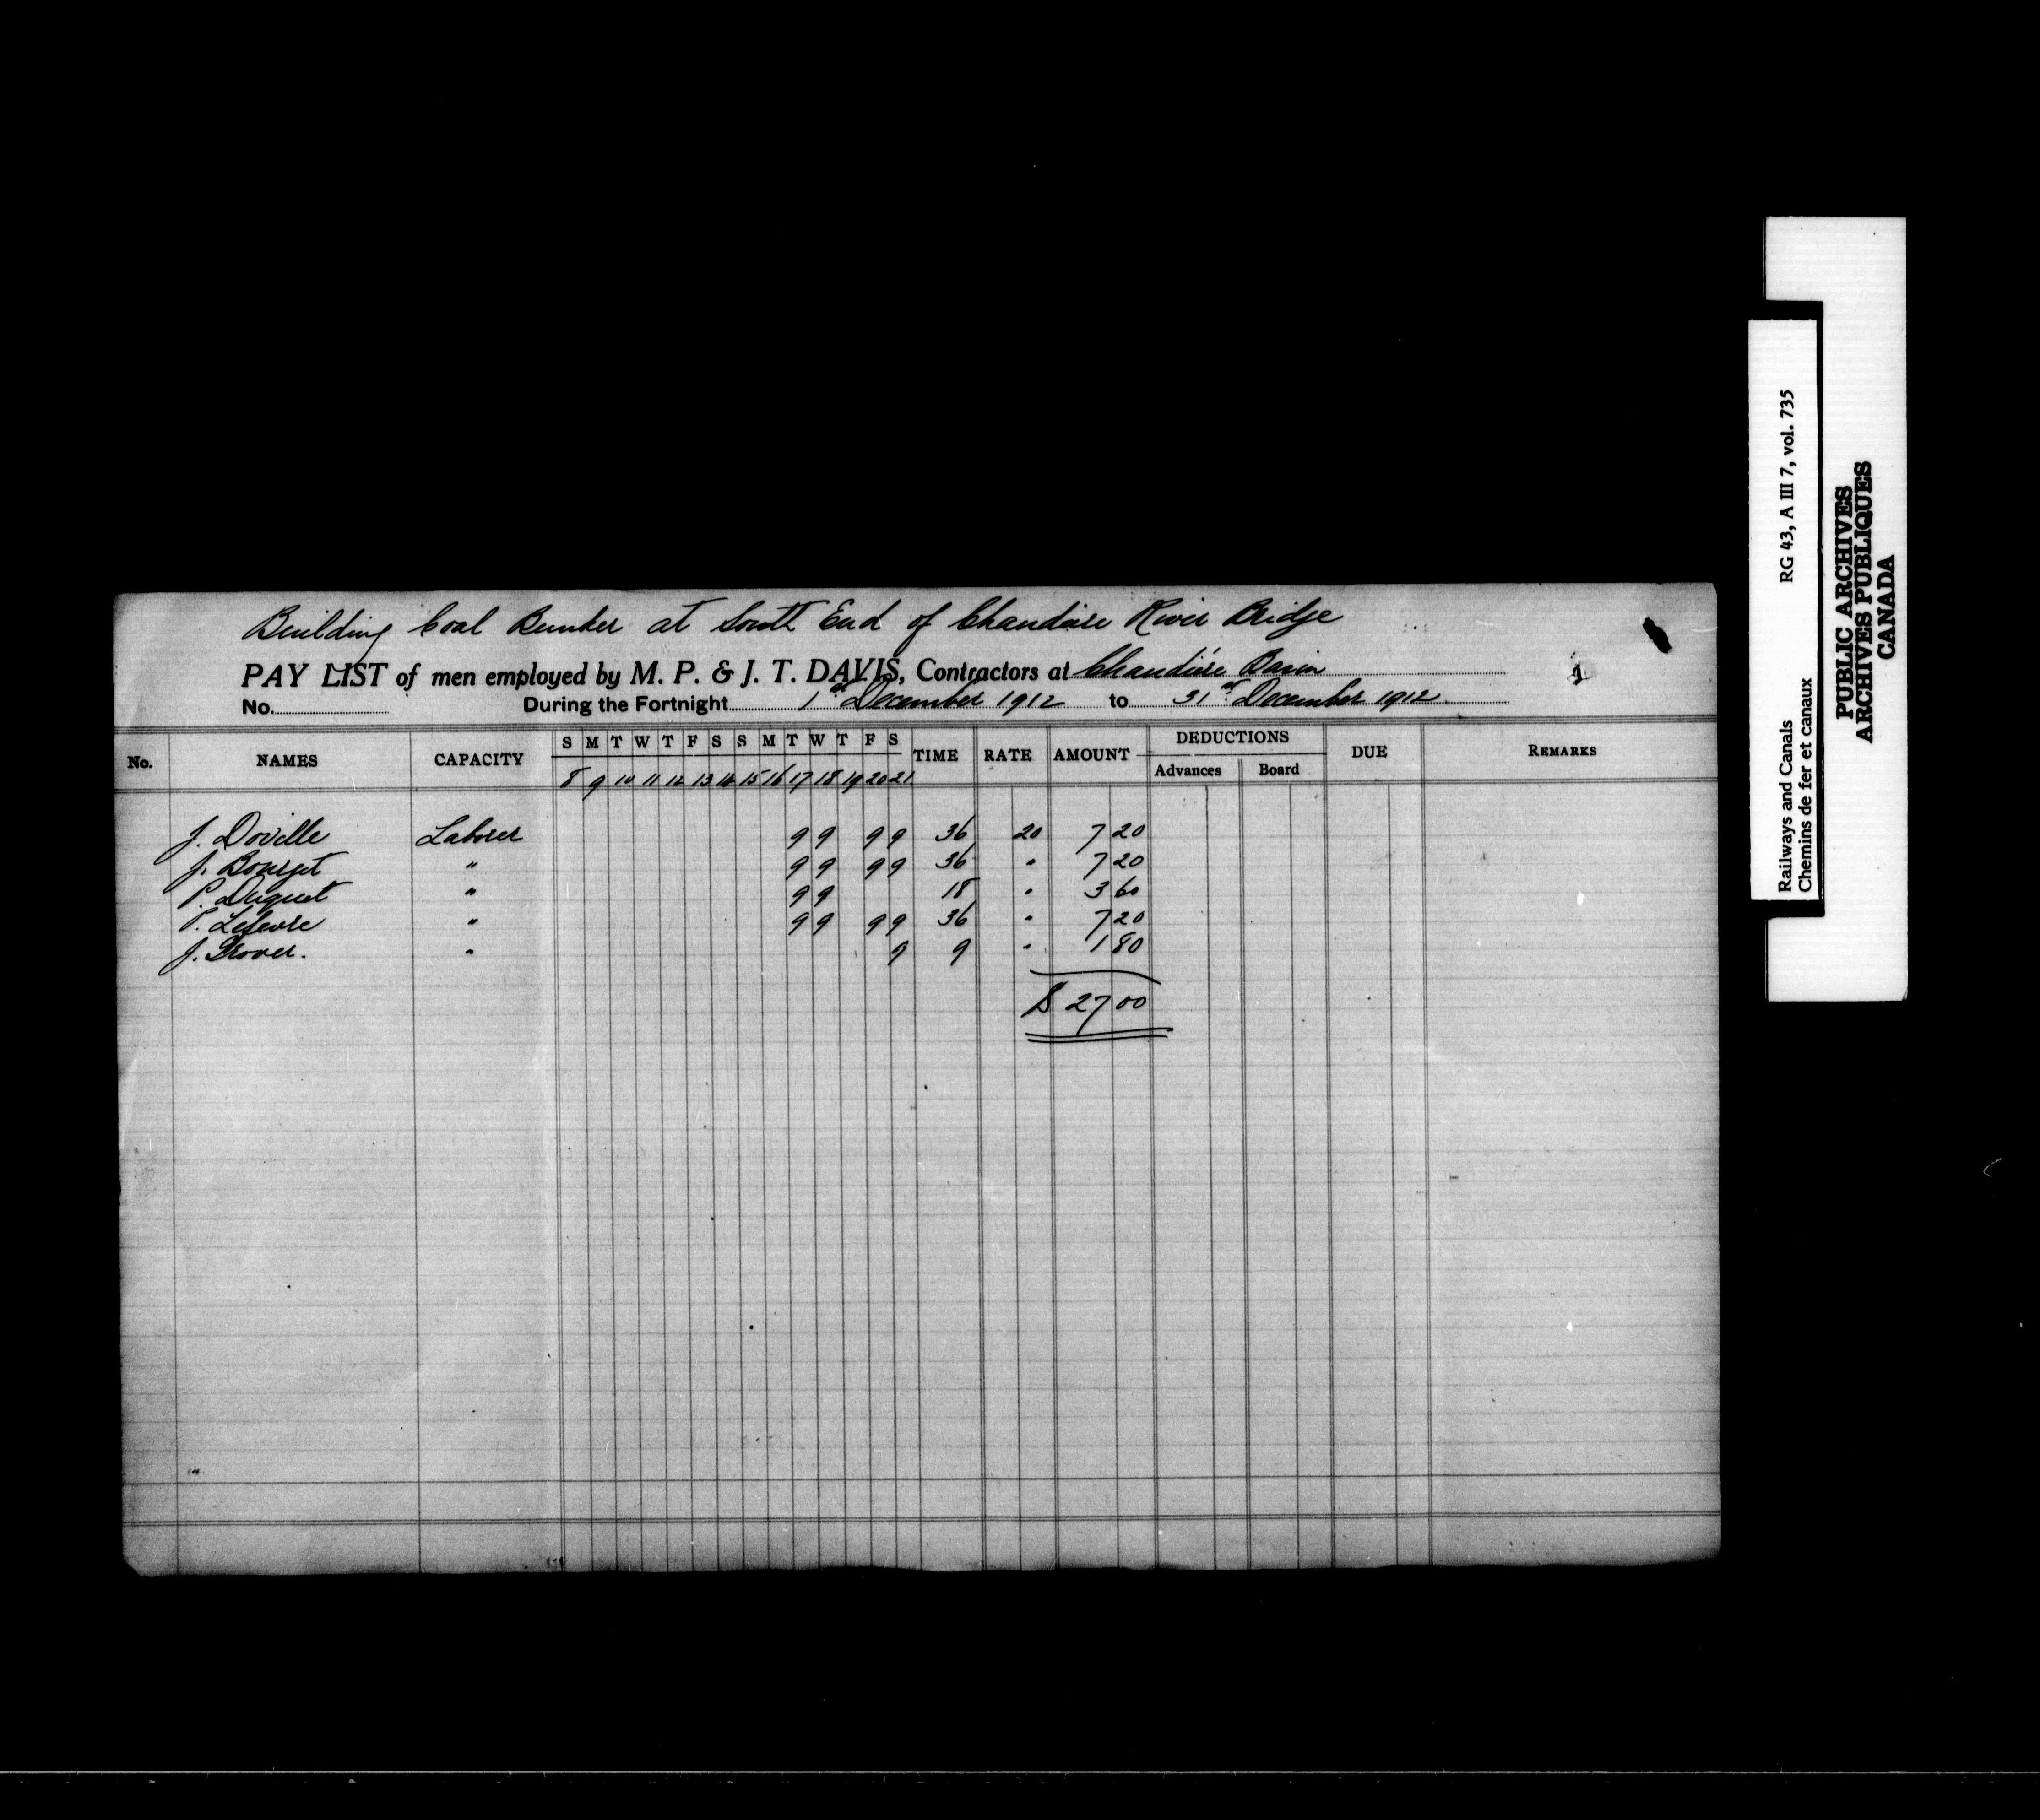 Building Coal Bunker at South End of Chaudière River Bridge
PAY LIST of men employed by M. P. & J. T. DAVIS, Contractors at Chaudière Basin
No. During the Fortnight 1st December 1912 to 31st December 1912
No. NAMES CAPACITY S M T W T F S S M T W T F S TIME RATE AMOUNT DEDUCTIONS Advances Board DUE REMARKS
8 9 10 11 12 13 14 15 16 17 18 19 20 21
J. Doville Laborer 9 9 9 9 36 20 7 20
J. Bourget " 9 9 9 9 36 " 7 20
P. Duquet " 9 9 18 " 3 60
P. Lefevre " 9 9 9 9 36 " 7 20
J. Grover. " 9 9 " 1 80
$ 27 00
Railways and Canals RG 43, A III 7, vol. 735
Chemins de fer et canaux
PUBLIC ARCHIVES
ARCHIVES PUBLIQUES
CANADA